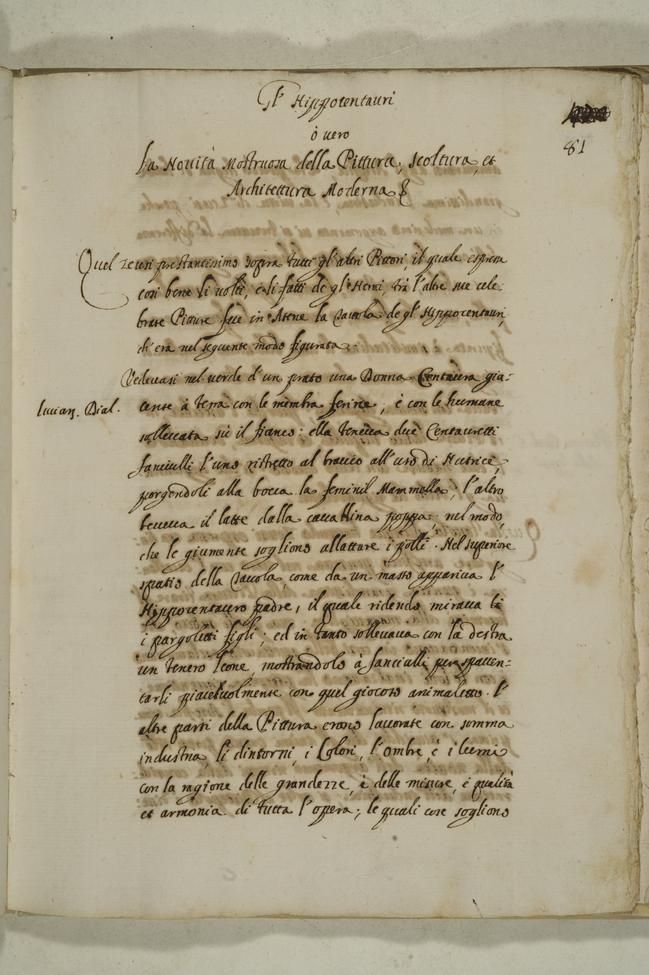 Gl' Hippocentauri
81
ò vero
La Novità Mostruosa della Pittura, Scoltura, et
Architettura Moderna
Quel Zeusi prestantissimo sopra tutti gl'altri Pittori, il quale espresse
così bene li volti, e li fatti de gl'Heroi, trà l'altre sue cele-
brate Pitture fece in Atene la Tavola de gl'Hippocentauri,
ch'era nel seguente modo figurata.
Vedevasi nel verde d'un prato una Donna Centaura gia-
Lucian. Dial.
cente à terra con le membra ferine, è con le humane
sollevata sù il fianco: ella teneva due Centauretti
fanciulli l'uno ristretto al braccio all'uso di Nutrice,
porgendoli alla bocca la feminil Mammella; l'altro
beveva il latte dalla cavallina poppa, nel modo,
che le giumente sogliono allattare i polli. Nel superiore
spatio della Tavola, come da un masso appariva l'
Hippocentauro padre, il quale ridendo mirava
i pargoletti figli; ed in tanto sollevava con la destra
un tenero leone, mostrandolo à fanciulli per spaven-
tarli piacevolmente con quel giocoso animaletto. L'
altre parti della Pittura erano lavorate con somma
industria, li dintorni, i Colori, l'ombre, è i lumi
con la ragione delle grandezze, è delle misure, è qualità
et armonia di tutta l'opera; le quali cose sogliono